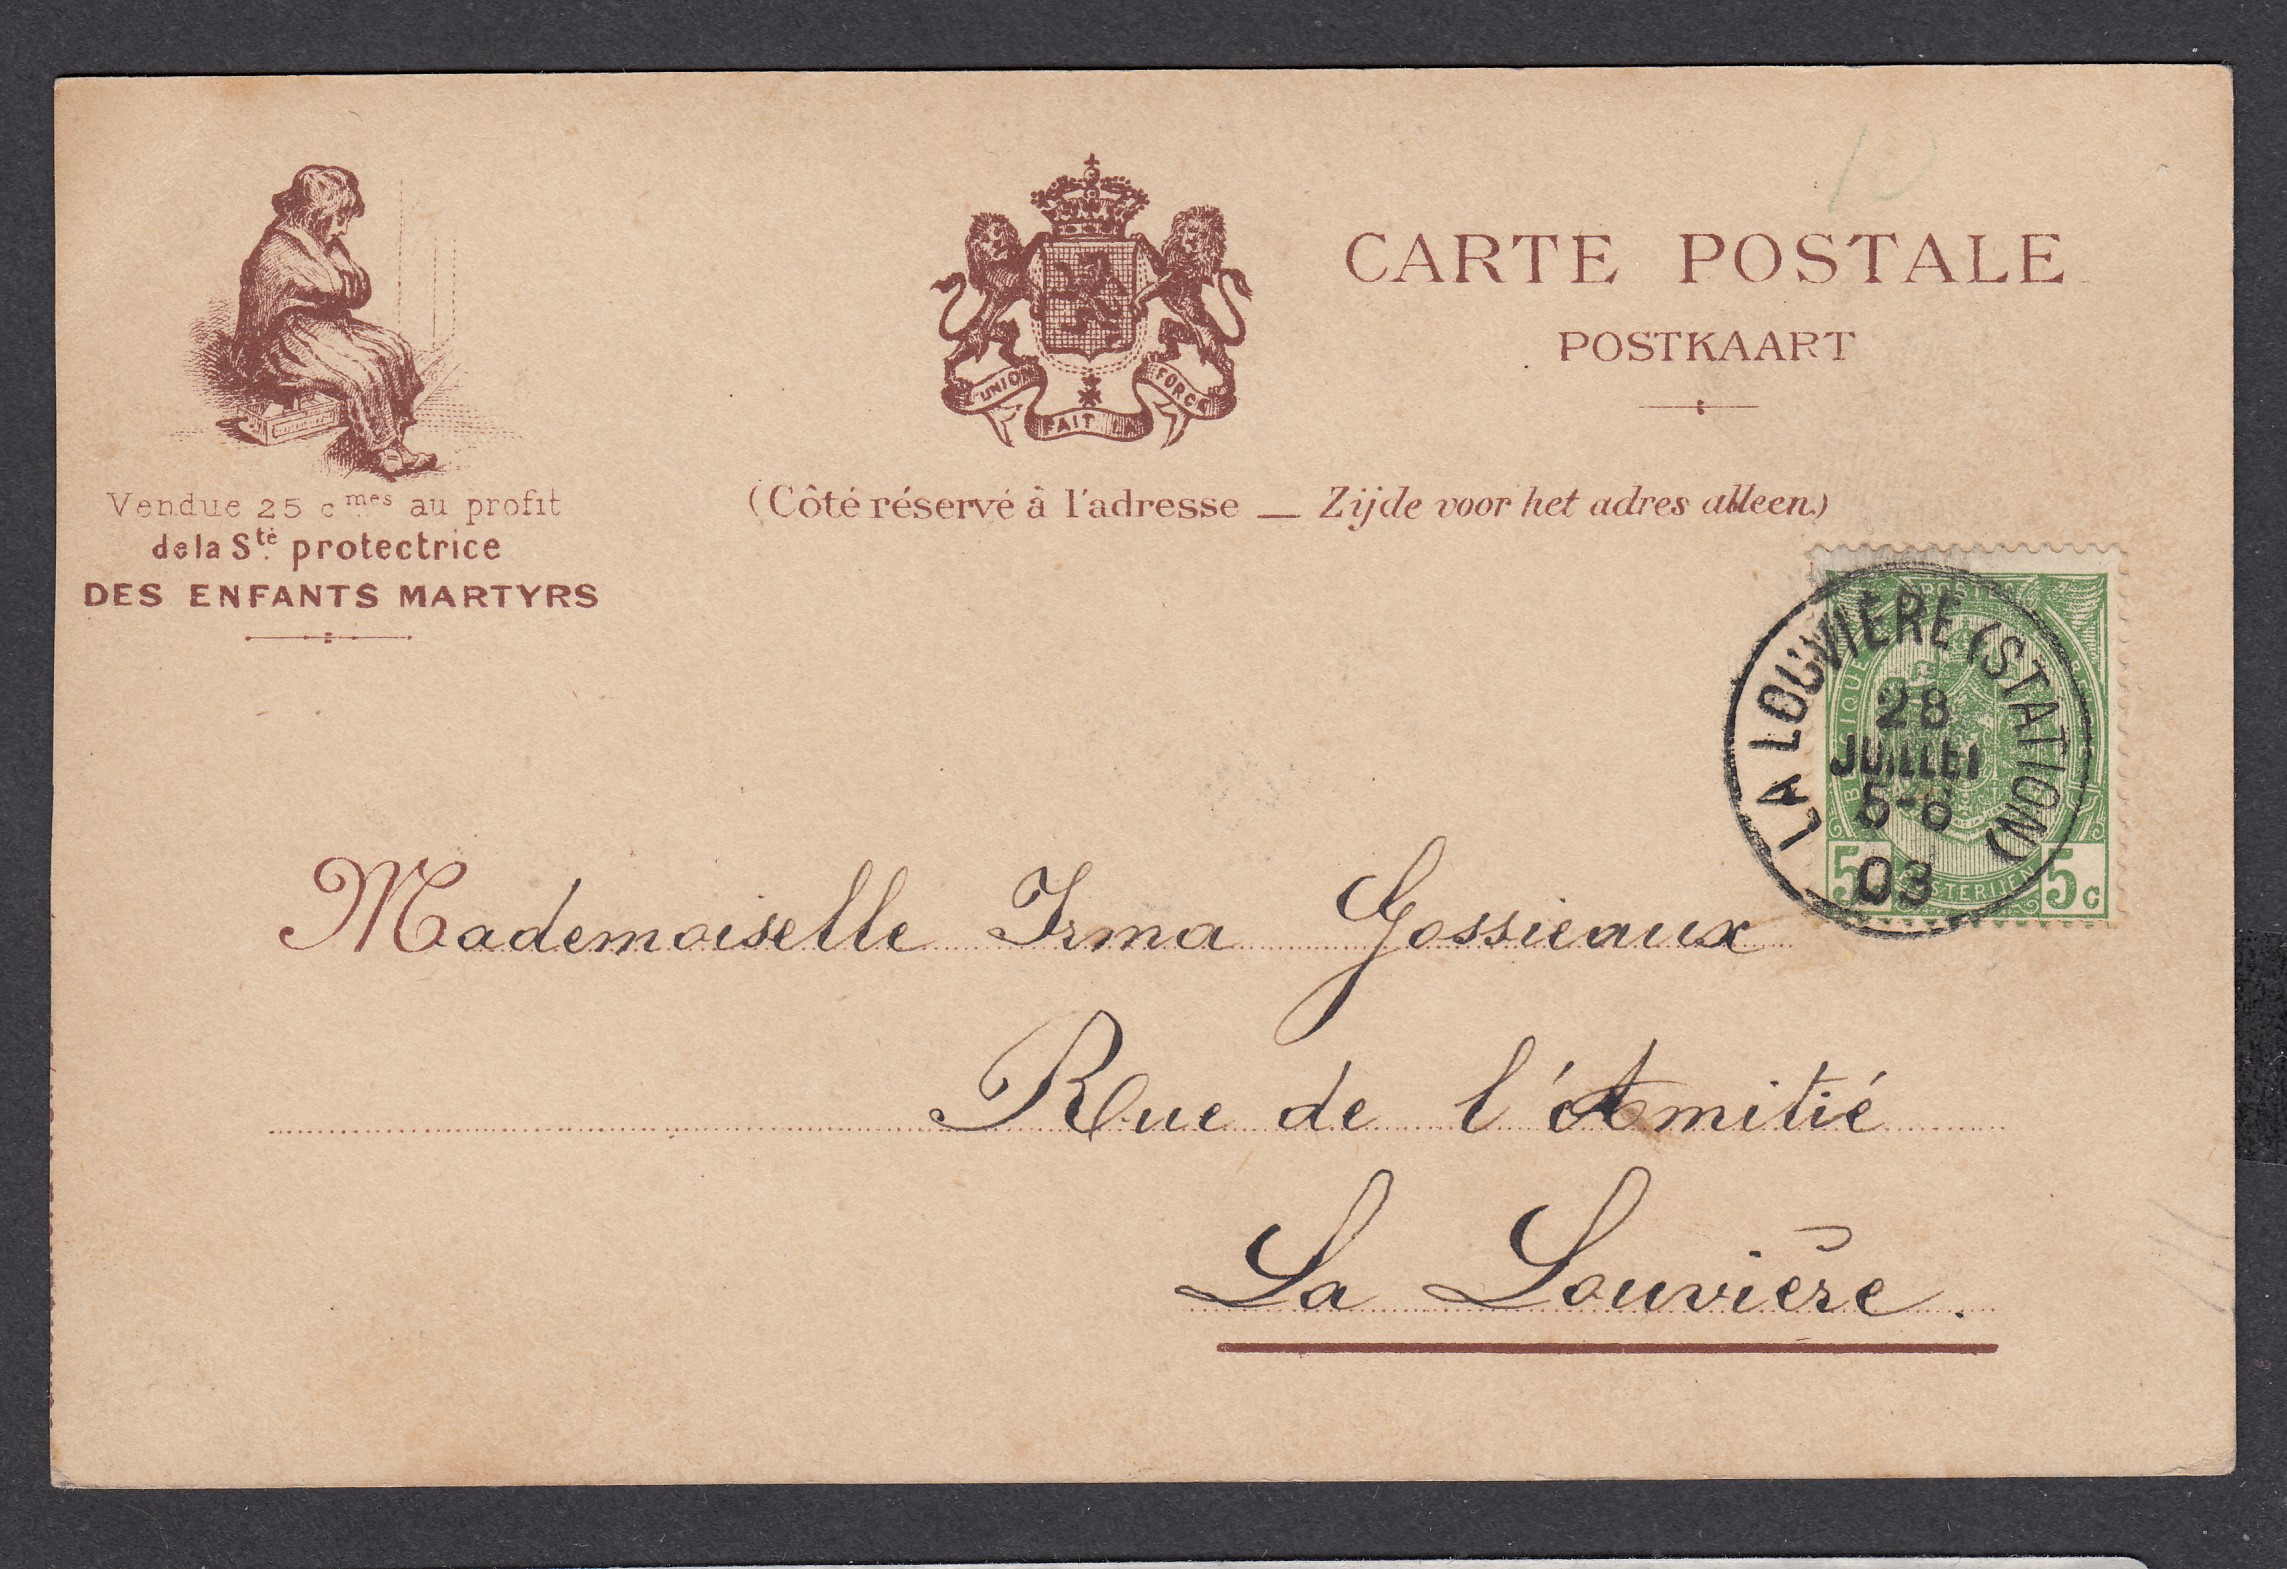 CARTE POSTALE
POSTKAART
L'UNION FAIT LA FORCE
Vendue 25 cmes au profit
de la Sté protectrice
DES ENFANTS MARTYRS
(Côté réservé à l'adresse — Zijde voor het adres alleen)
LA LOUVIÈRE (STATION)
28
JUILLET
5-6
03
5 5c
Mademoiselle Irma Gossieaux
Rue de l'Amitié
La Louvière.
10